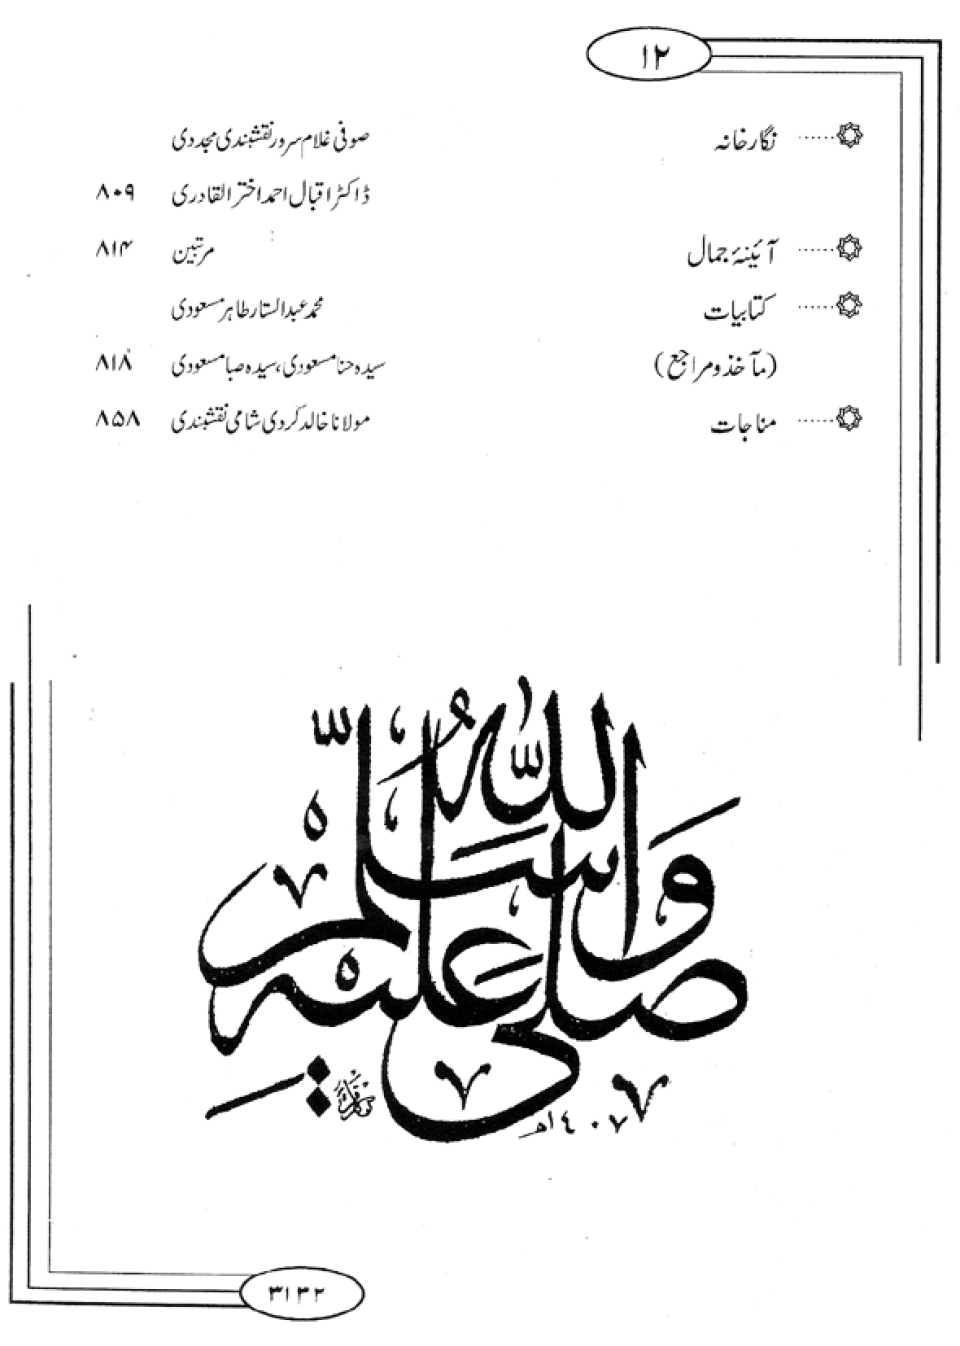 ۱۲
نگارخانہ ...... صوفی غلام سرور نقشبندی مجددی
ڈاکٹر اقبال احمد اختر القادری ۸۰۹
آئینۂ جمال ...... مرتبین ۸۱۴
کتابیات ...... محمد عبدالستار طاہر مسعودی
(مآخذ و مراجع) سیدہ حنا مسعودی، سیدہ صبا مسعودی ۸۱۸
مناجات ...... مولانا خالد کردی شامی نقشبندی ۸۵۸
صلى الله عليه واسلم
۱٤۰۷ھ
۳۱۳۲